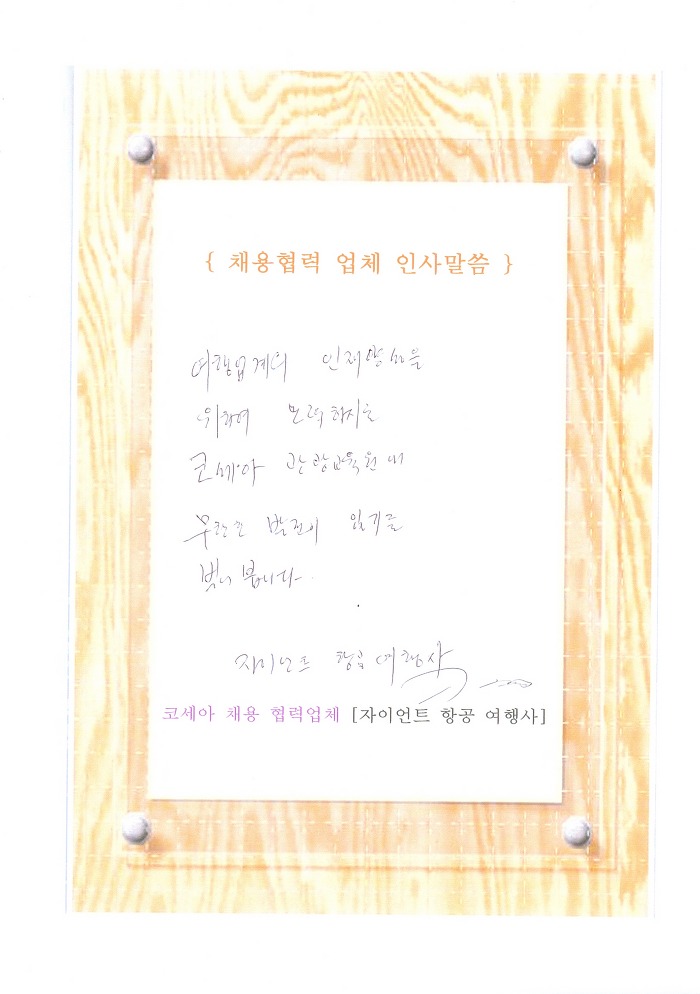 { 채용협력 업체 인사말씀 }
여행업계의 인재양성을
위하여 노력하시는
코세아 관광교육원에
무한한 발전이 있기를
빌어 봅니다.
자이언트 항공 여행사
코세아 채용 협력업체 [자이언트 항공 여행사]